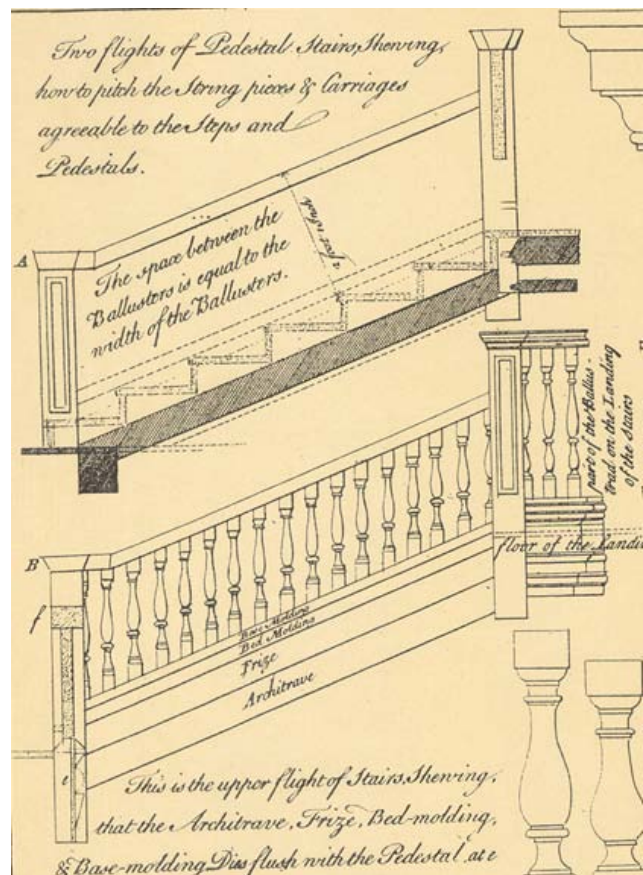 Two flights of Pedestal Stairs, Shewing,
how to pitch the String pieces & Carriages
agreeable to the Steps and
Pedestals.
A
The space between the
Ballusters is equal to the
width of the Ballusters.
2 feet
part of the Ballus-
trad on the Landing
of the Stairs
B
floor of the Landi
f
Base Molding
Bed Molding
Frize
Architrave
e
This is the upper flight of Stairs, Shewing,
that the Architrave, Frize, Bed-molding,
& Base-molding Dies flush with the Pedestal at e